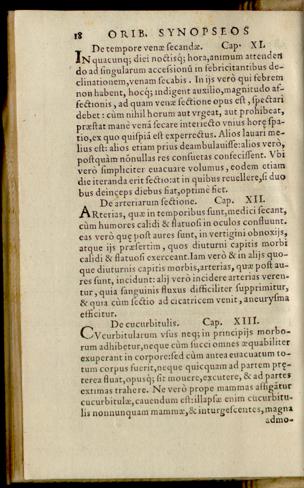 18 ORIB. SYNOPSEOS
De tempore venæ secandæ. Cap. XI.
IN quacunq; diei noctisq; hora, animum attenden
do ad singularum accessionū in febricitantibus de-
clinationem, venam secabis. In ijs verò qui febrem
non habent, hocq; indigent auxilio, magnitudo af-
fectionis, ad quam venæ sectione opus est, spectari
debet: cùm nihil horum aut vrgeat, aut prohibeat,
præstat manè venā secare interiecto vnius horę spa-
tio, ex quo quispiā est experrectus. Alios lauari me-
lius est: alios etiam prius deambulauisse: alios verò,
postquàm nōnullas res consuetas confecissent. Vbi
verò simpliciter euacuare volumus, eodem etiam
die iteranda erit sectio: at in quibus reuellere, si duo
bus deinceps diebus fiat, optimè fiet.
De arteriarum sectione. Cap. XII.
ARterias, quæ in temporibus sunt, medici secant,
cùm humores calidi & flatuosi in oculos confluunt.
eas verò quę post aures sunt, in vertigini obnoxijs,
atque ijs præsertim, quos diuturni capitis morbi
calidi & flatuosi exerceant. Iam verò & in alijs quo-
que diuturnis capitis morbis, arterias, quæ post au-
res sunt, incidunt: alij verò incidere arterias veren-
tur, quia sanguinis fluxus difficiliter supprimitur,
& quia cùm sectio ad cicatricem venit, aneurysma
efficitur.
De cucurbitulis. Cap. XIII.
CVcurbitularum vsus neq; in principijs morbo-
rum adhibetur, neque cùm succi omnes æquabiliter
exuperant in corpore: sed cùm antea euacuatum to-
tum corpus fuerit, neque quicquam ad partem prę-
terea fluat, opusq; sit mouere, excutere, & ad partes
extimas trahere. Ne verò prope mammas affigātur
cucurbitulæ, cauendum est: illapsæ enim cucurbitu-
lis nonnunquam mammæ, & inturgescentes, magna
admo-